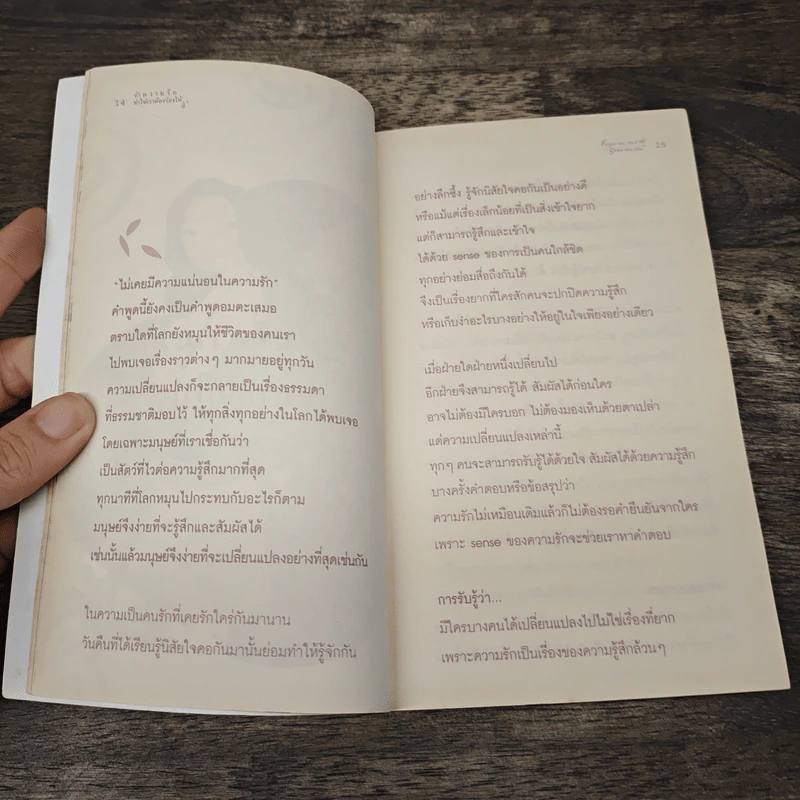 14 ถ้าความรัก
ทำให้เราต้องร้องไห้
"ไม่เคยมีความแน่นอนในความรัก"
คำพูดนี้ยังคงเป็นคำพูดอมตะเสมอ
ตราบใดที่โลกยังหมุนให้ชีวิตของคนเรา
ไปพบเจอเรื่องราวต่างๆ มากมายอยู่ทุกวัน
ความเปลี่ยนแปลงก็จะกลายเป็นเรื่องธรรมดา
ที่ธรรมชาติมอบไว้ ให้ทุกสิ่งทุกอย่างในโลกได้พบเจอ
โดยเฉพาะมนุษย์ที่เราเชื่อกันว่า
เป็นสัตว์ที่ไวต่อความรู้สึกมากที่สุด
ทุกนาทีที่โลกหมุนไปกระทบกับอะไรก็ตาม
มนุษย์จึงง่ายที่จะรู้สึกและสัมผัสได้
เช่นนั้นแล้วมนุษย์จึงง่ายที่จะเปลี่ยนแปลงอย่างที่สุดเช่นกัน
ในความเป็นคนรักที่เคยรักใคร่กันมานาน
วันคืนที่ได้เรียนรู้นิสัยใจคอกันมานั้นย่อมทำให้รู้จักกัน
15
อย่างลึกซึ้ง รู้จักนิสัยใจคอกันเป็นอย่างดี
หรือแม้แต่เรื่องเล็กน้อยที่เป็นสิ่งเข้าใจยาก
แต่ก็สามารถรู้สึกและเข้าใจ
ได้ด้วย sense ของการเป็นคนใกล้ชิด
ทุกอย่างย่อมสื่อถึงกันได้
จึงเป็นเรื่องยากที่ใครสักคนจะปกปิดความรู้สึก
หรือเก็บงำอะไรบางอย่างให้อยู่ในใจเพียงอย่างเดียว
เมื่อฝ่ายใดฝ่ายหนึ่งเปลี่ยนไป
อีกฝ่ายจึงสามารถรู้ได้ สัมผัสได้ก่อนใคร
อาจไม่ต้องมีใครบอก ไม่ต้องมองเห็นด้วยตาเปล่า
แต่ความเปลี่ยนแปลงเหล่านี้
ทุกๆ คนจะสามารถรับรู้ได้ด้วยใจ สัมผัสได้ด้วยความรู้สึก
บางครั้งคำตอบหรือข้อสรุปว่า
ความรักไม่เหมือนเดิมแล้วก็ไม่ต้องรอคำยืนยันจากใคร
เพราะ sense ของความรักจะช่วยเราหาคำตอบ
การรับรู้ว่า...
มีใครบางคนได้เปลี่ยนแปลงไปไม่ใช่เรื่องที่ยาก
เพราะความรักเป็นเรื่องของความรู้สึกล้วนๆ